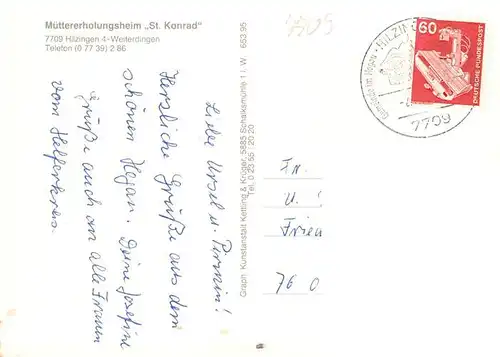 Müttererholungsheim „St. Konrad“
7709 Hilzingen 4-Weiterdingen
Telefon (0 77 39) 2 86
Liebe Ursel u.
Herzliche Grüße aus dem
schönen Hegau. Deine Josefine
Grüße auch an alle Frauen
vom Helferkreis.
Graph. Kunstanstalt Kettling & Krüger, 5885 Schalksmühle 1 i. W. 653 95
Tel. 0 23 55 / 20 20
7709
60
DEUTSCHE BUNDESPOST
7709
Fr.
U.
76 0